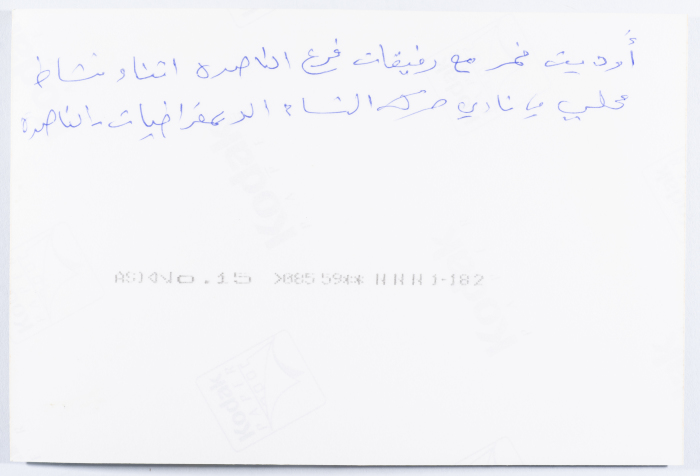 أوديت نمر مع رفيقات فرع الناصرة اثناء نشاط
محلي في نادي حركة النساء الديمقراطيات - الناصرة
No.15 >08559** N N N 1-182
Kodak
Kodak
Kodak